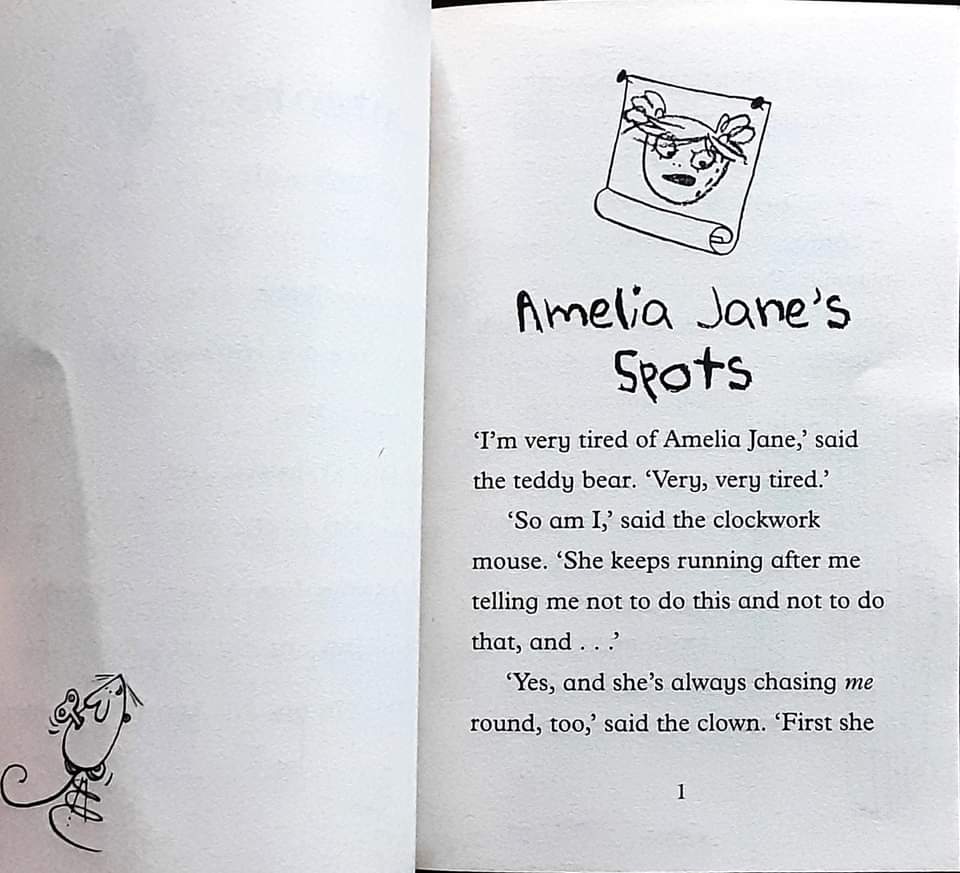 Amelia Jane's
Spots
‘I’m very tired of Amelia Jane,’ said
the teddy bear. ‘Very, very tired.’
‘So am I,’ said the clockwork
mouse. ‘She keeps running after me
telling me not to do this and not to do
that, and . . .’
‘Yes, and she’s always chasing me
round, too,’ said the clown. ‘First she
1